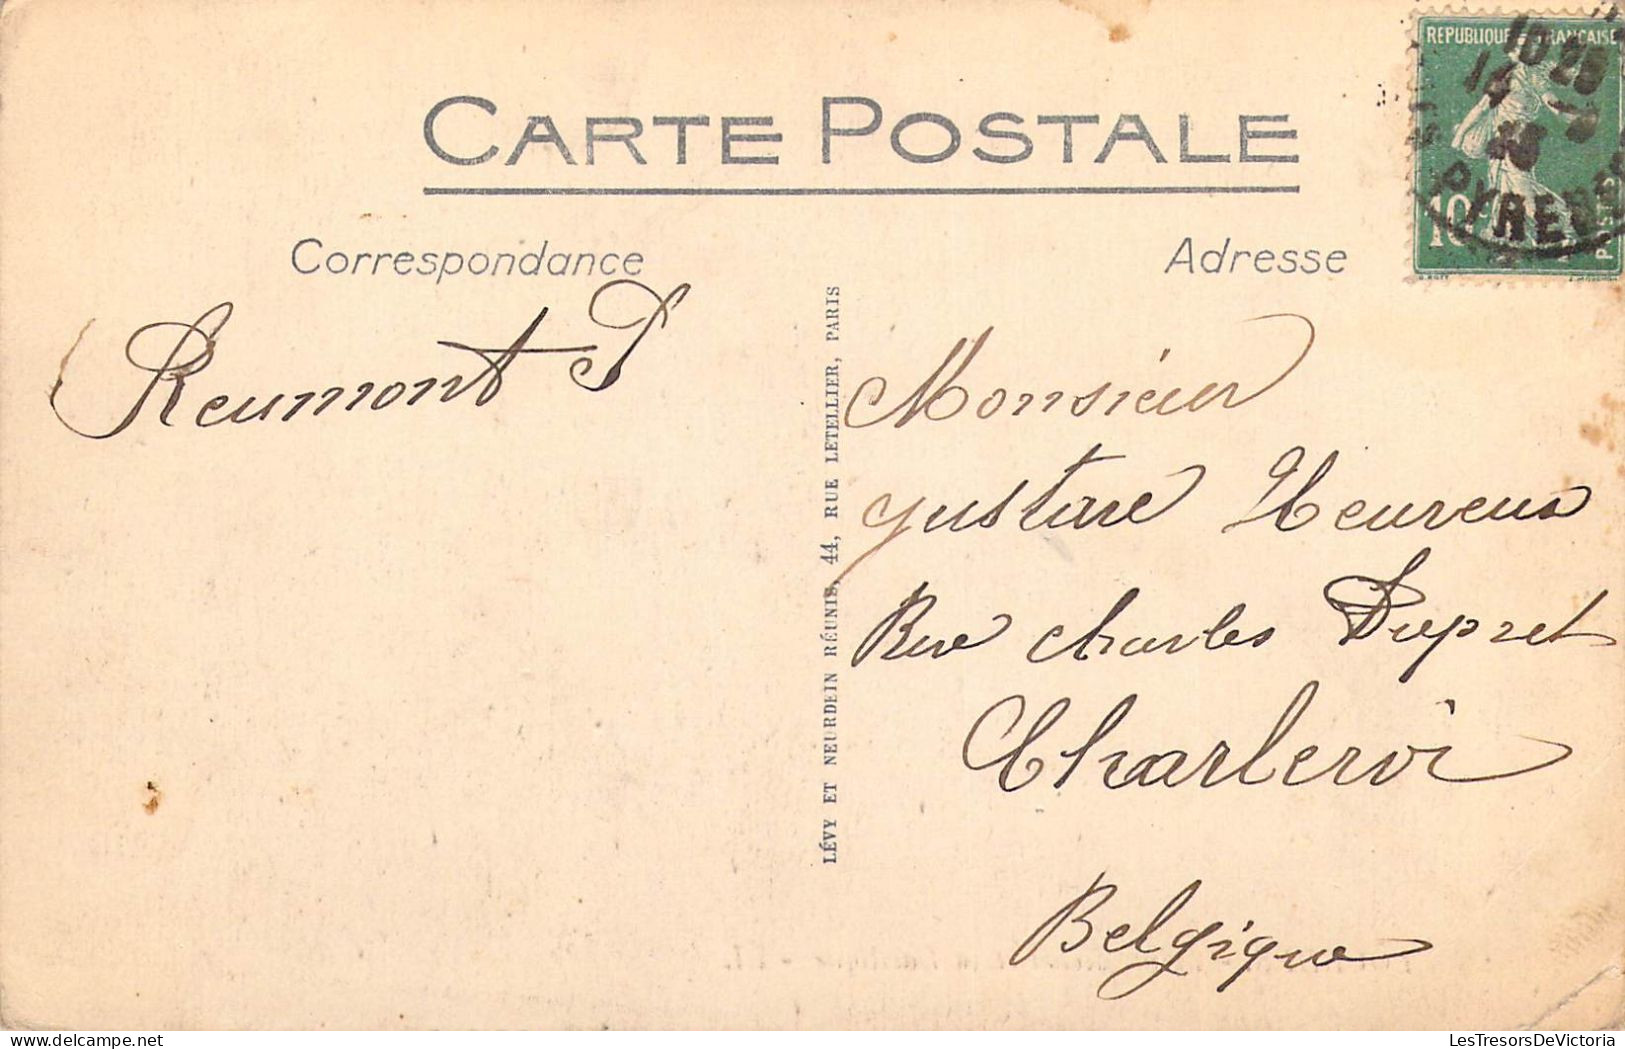 CARTE POSTALE
Correspondance
Adresse
REPUBLIQUE FRANÇAISE
10
POSTES
10 25
14
PYRENEES
Reumont J
LÉVY ET NEURDEIN RÉUNIS, 44, RUE LETELLIER, PARIS
Monsieur
Gustave Heureux
Rue Charles Dupret
Charleroi
Belgique
LesTresorsDeVictoria.com